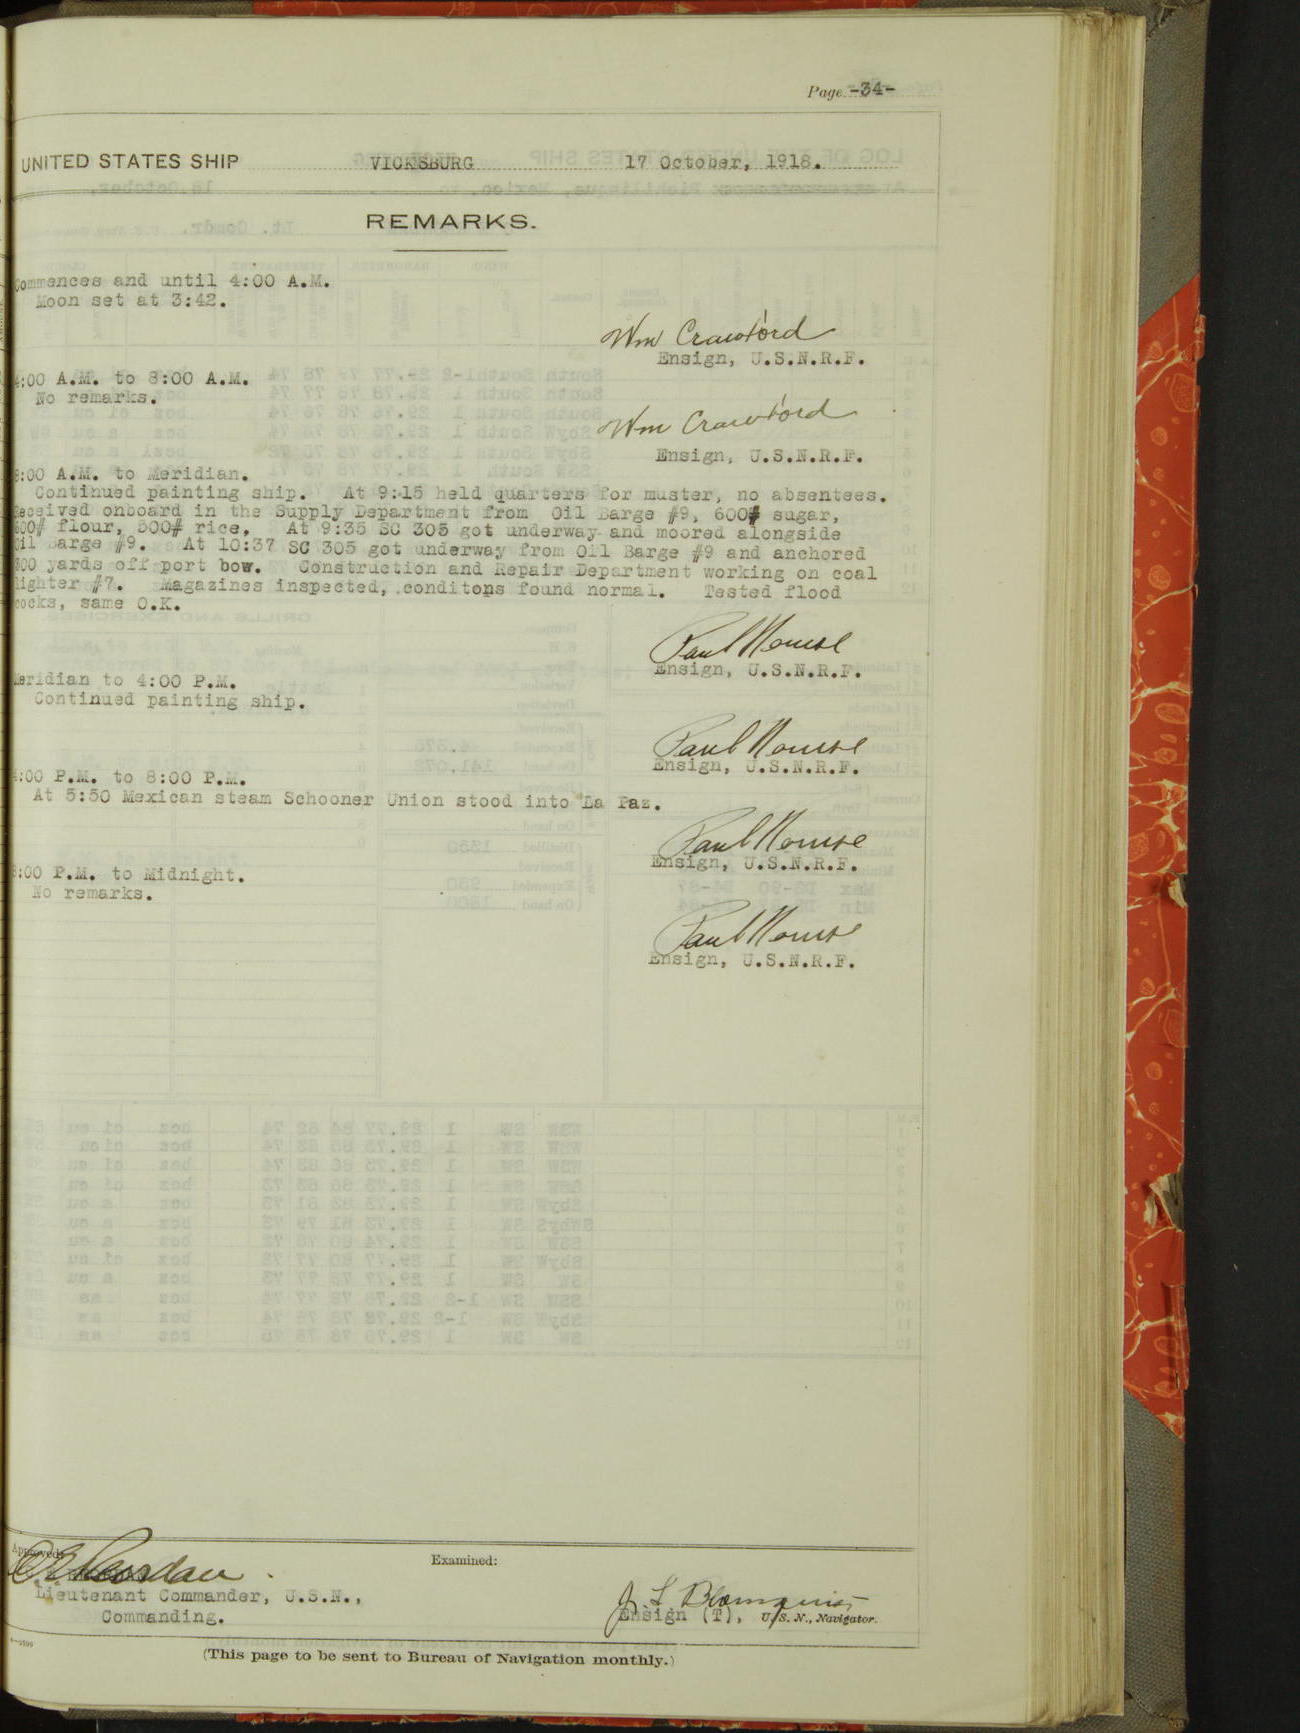 Page -34-
UNITED STATES SHIP VICKSBURG 17 October, 1918.
REMARKS.
Commences and until 4:00 A.M.
Moon set at 3:42.
Wm Crawford
Ensign, U.S.N.R.F.
4:00 A.M. to 8:00 A.M.
No remarks.
Wm Crawford
Ensign, U.S.N.R.F.
8:00 A.M. to Meridian.
Continued painting ship. At 9:15 held quarters for muster, no absentees.
Received onboard in the Supply Department from Oil Barge #9, 600# sugar,
600# flour, 500# rice. At 9:35 SC 305 got underway and moored alongside
Oil Barge #9. At 10:37 SC 305 got underway from Oil Barge #9 and anchored
300 yards off port bow. Construction and Repair Department working on coal
lighter #7. Magazines inspected, conditons found normal. Tested flood
cocks, same O.K.
Paul Nourse
Ensign, U.S.N.R.F.
Meridian to 4:00 P.M.
Continued painting ship.
Paul Nourse
Ensign, U.S.N.R.F.
4:00 P.M. to 8:00 P.M.
At 5:50 Mexican steam Schooner Union stood into La Paz.
Paul Nourse
Ensign, U.S.N.R.F.
8:00 P.M. to Midnight.
No remarks.
Paul Nourse
Ensign, U.S.N.R.F.
Approved:
Lieutenant Commander, U.S.N.,
Commanding.
Examined:
J. L. Blomquist
Ensign (T), U. S. N., Navigator.
(This page to be sent to Bureau of Navigation monthly.)